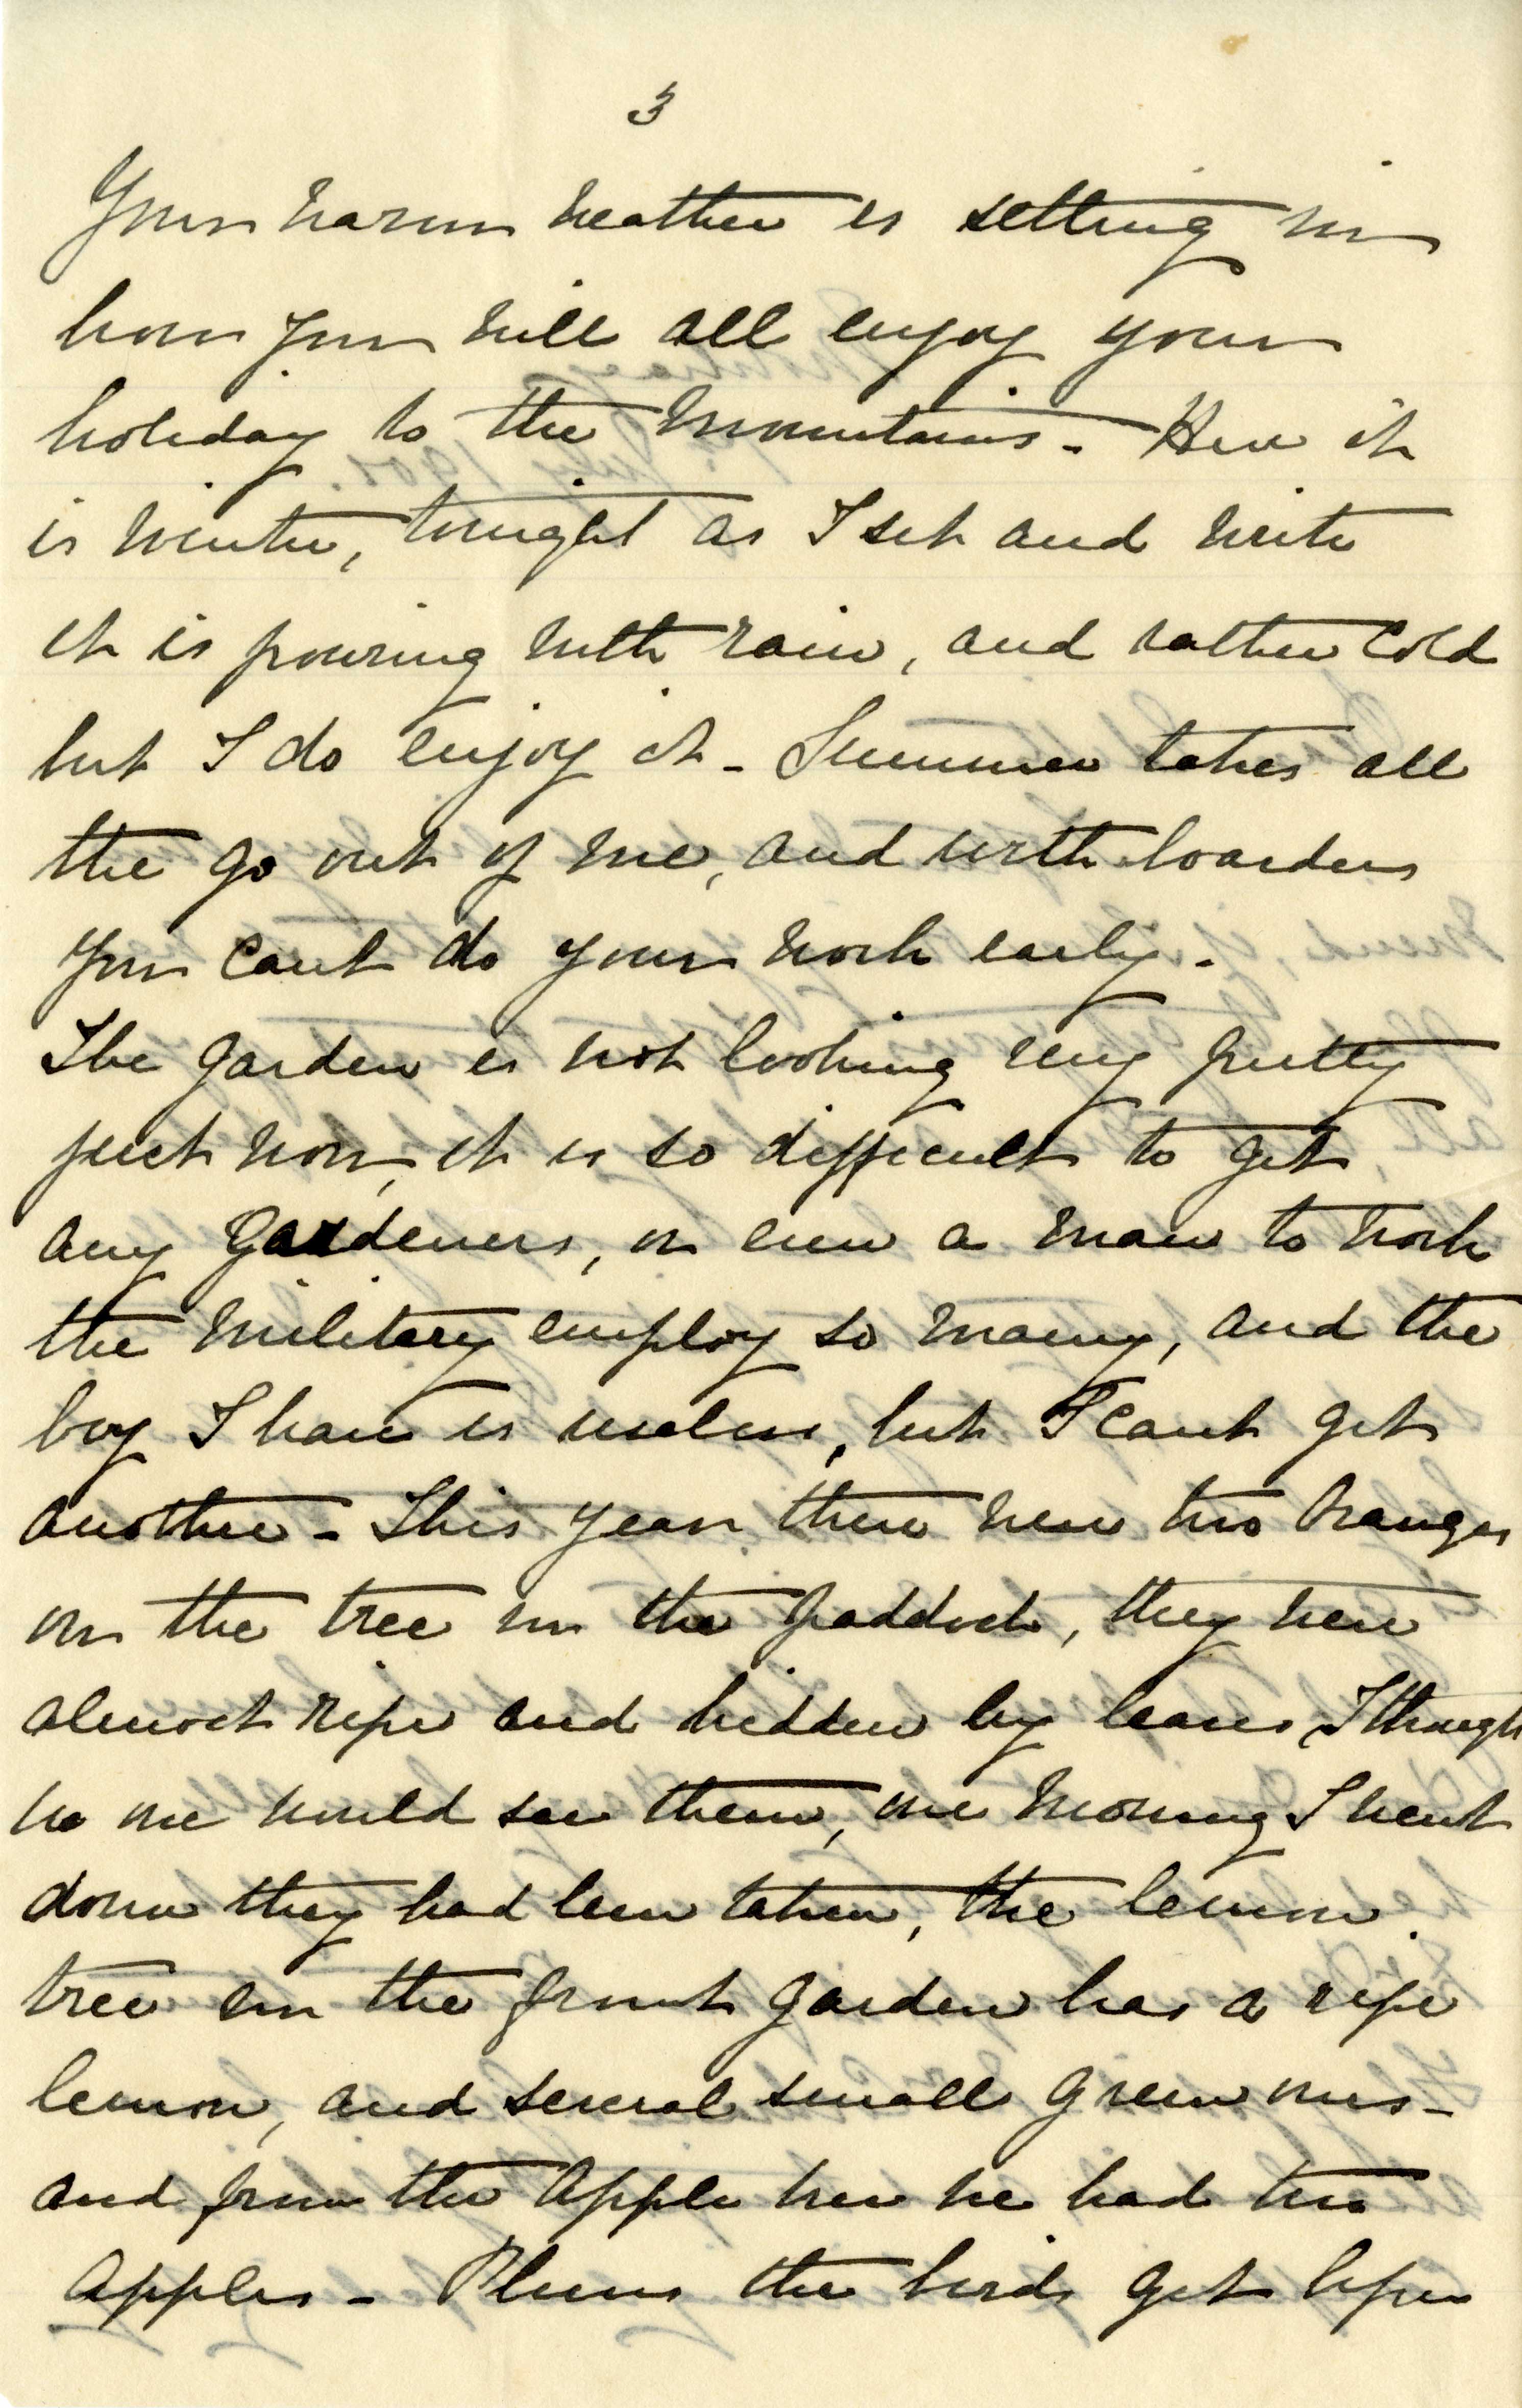 3
Your warm weather is setting in
how you will all enjoy your
holiday to the Mountains - Here it
is winter, tonight as I sit and write
it is pouring with rain, and rather cold
but I do enjoy it - Summer takes all
the go out of me, and with boarders
you cant do your work early -
The garden is not looking very pretty
just now, it is so difficult to get
any Gardeners, or even a man to work
the Military employ so many, and the
boy I have is useless, but I cant get
another - This year there were two Oranges
on the tree in the paddock, they were
almost ripe and hidden by leaves, I though
no one would see them, one morning I went
down they had been taken, the lemon
tree in the front garden has a ripe
lemon, and several small green ones -
and from the Apple tree we had two
Apples - Plums the birds get before